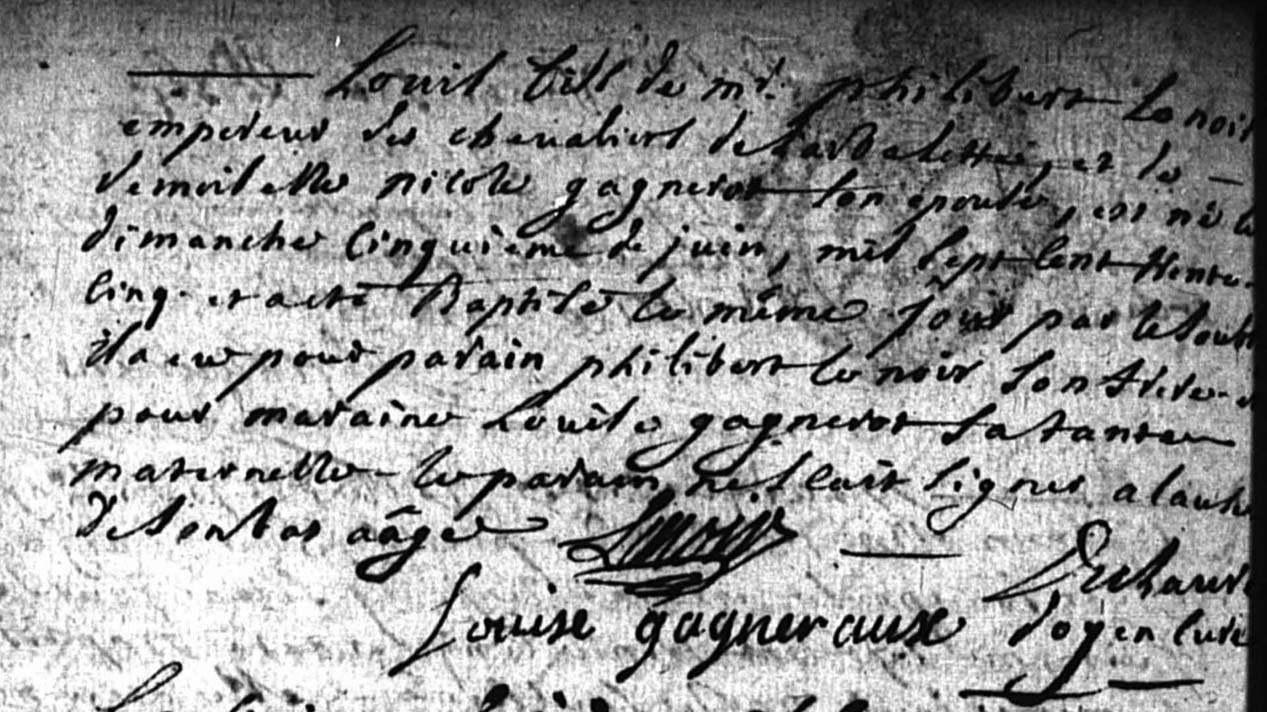 Louis fils de mr. philibert Lenoir
empereur des chevaliers de l'arbalettre, et de
demoiselle nicole gagnerot son epouse, est né le
dimanche cinquieme de juin, mil sept cent trente
cinq. et a eté Baptisé le même jour par le soub
il a eu pour parain philibert le noir son frere
pour maraine Louise gagnerot sa tante
maternelle le parain ne sçait signer a cause
de son bas aâge Lenoir
Louise gagneraux doyen curé